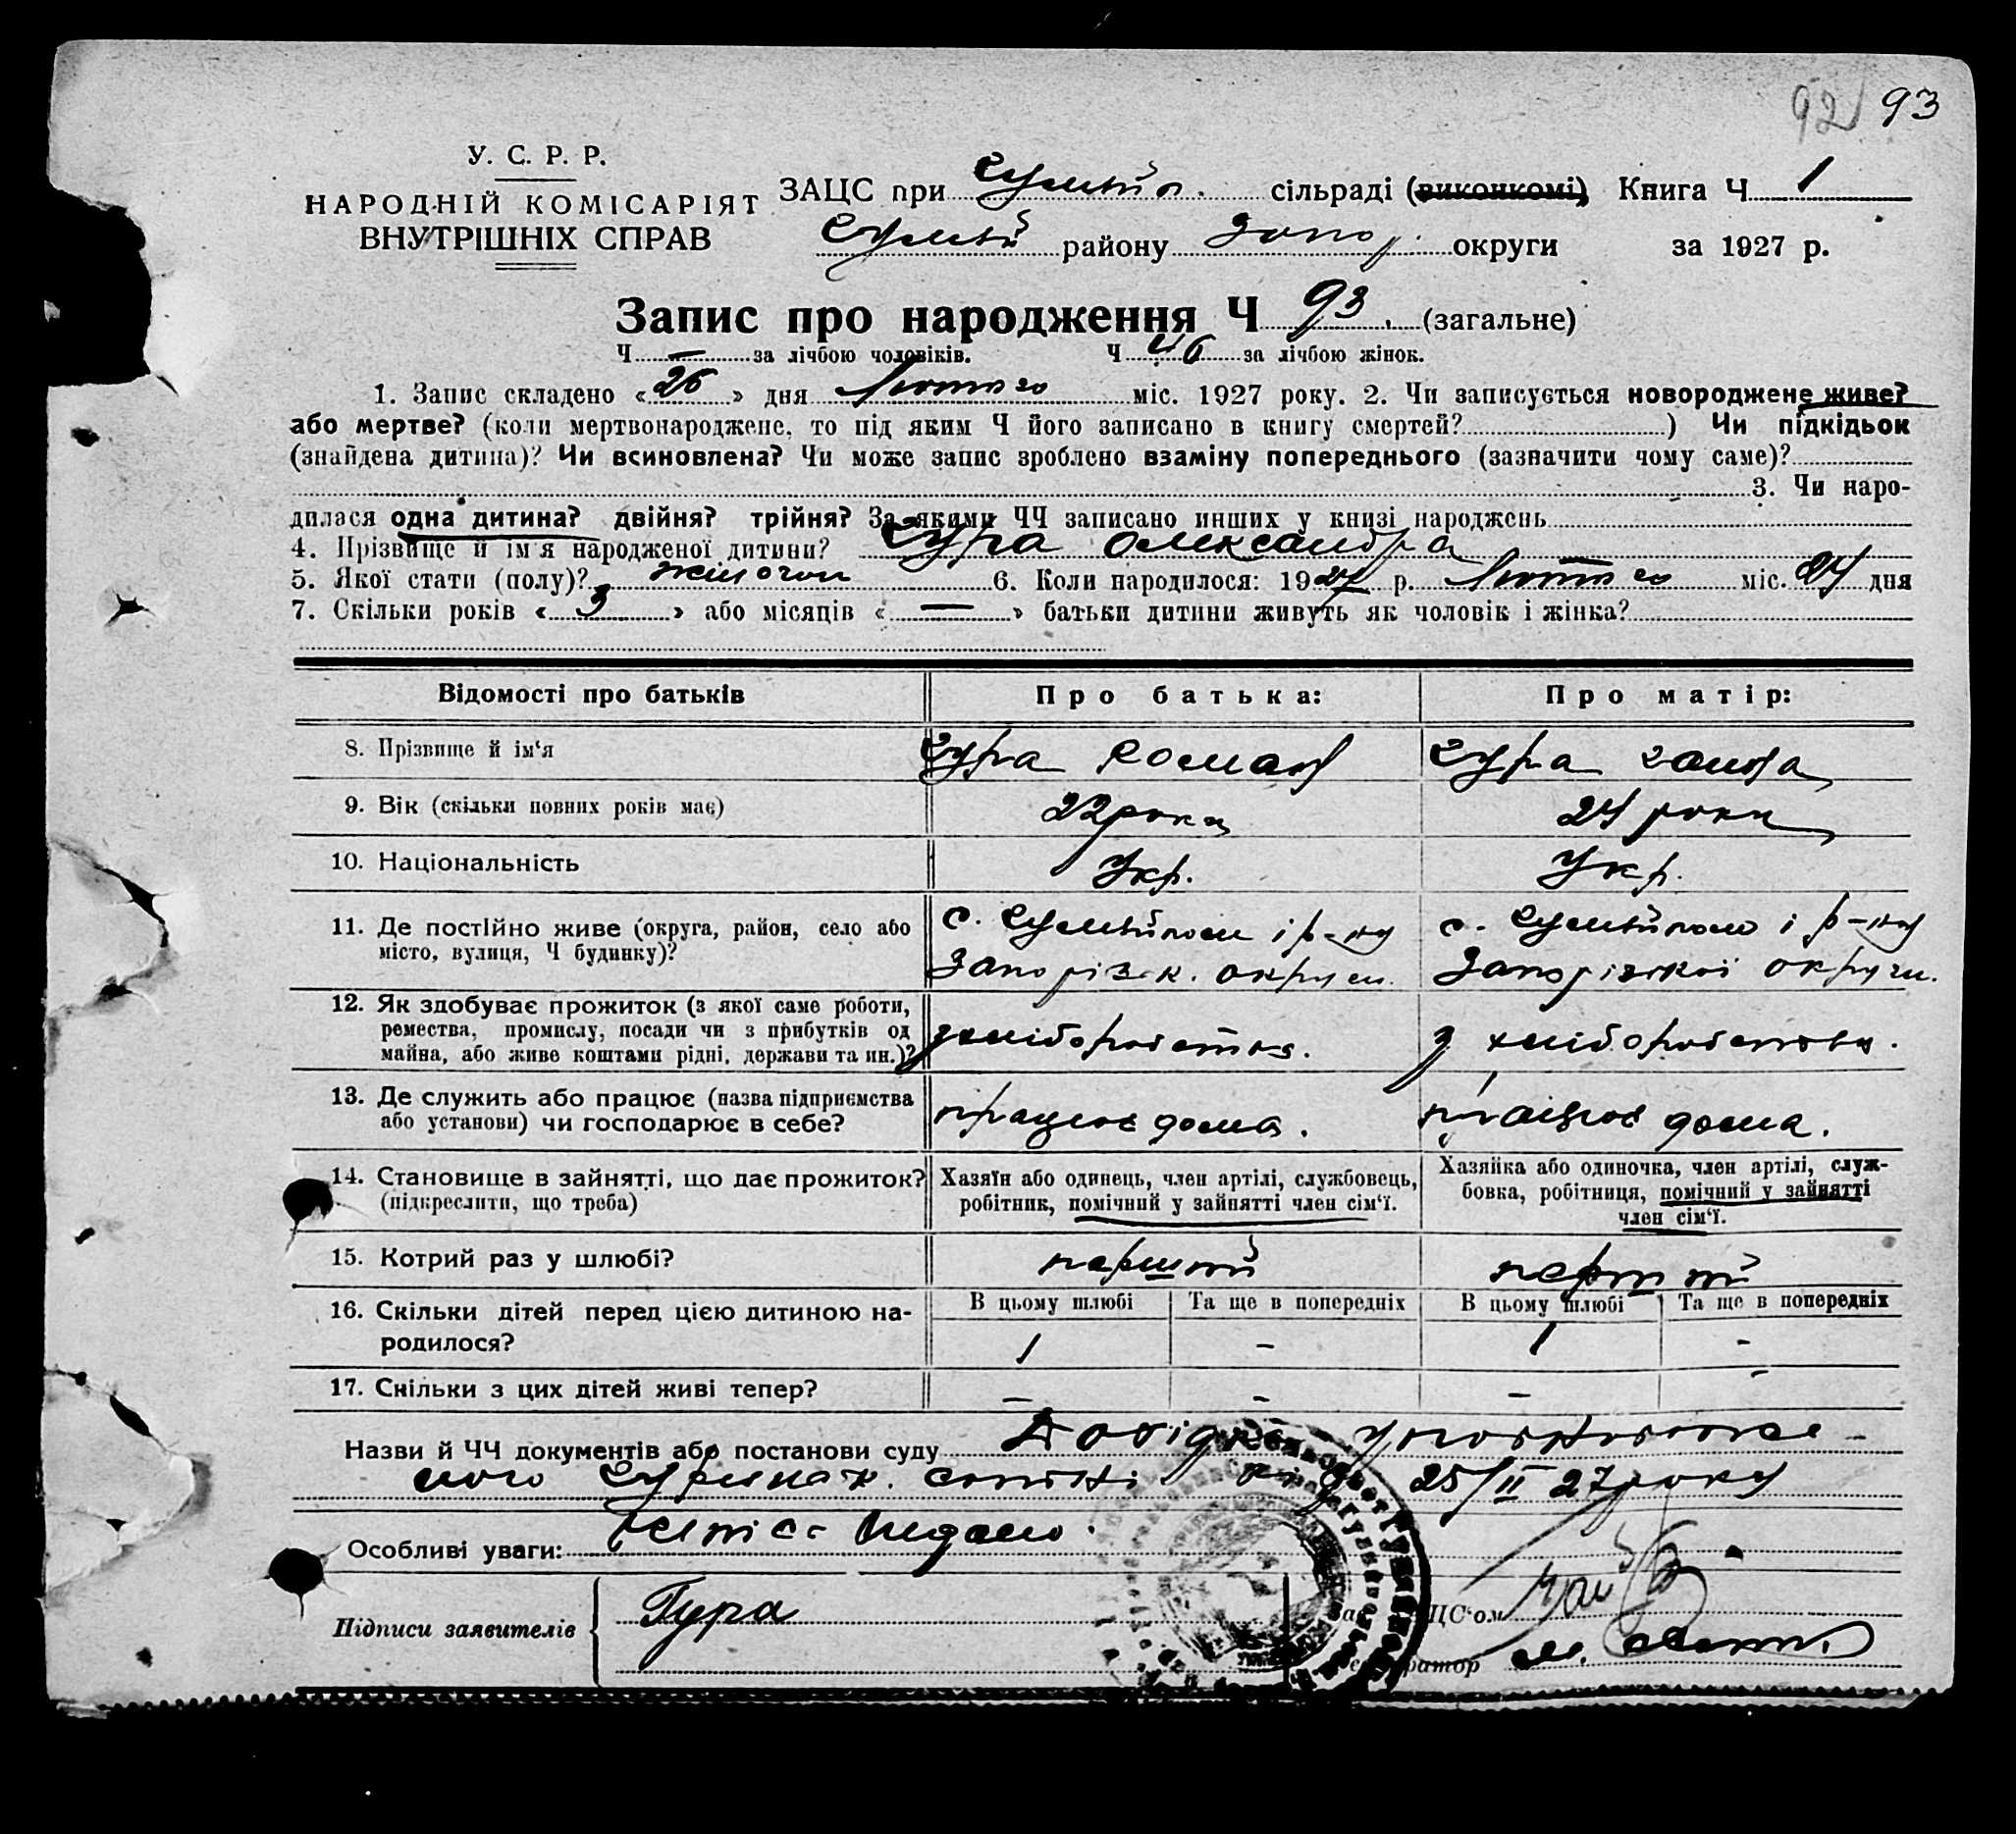 92 93
У. С. Р. Р.
НАРОДНІЙ КОМІСАРІЯТ
ВНУТРІШНІХ СПРАВ
ЗАЦС при Гуляйп. сільраді (виконкомі) Книга Ч 1
Гуляй району Запор. округи за 1927 р.
Запис про народження Ч 93. (загальне)
Ч — за лічбою чоловіків. Ч 46 за лічбою жінок.
1. Запис складено «26» дня Лютого міс. 1927 року. 2. Чи записується новороджене живе?
або мертве? (коли мертвонароджене, то під яким Ч його записано в книгу смертей?) Чи підкідьок
(знайдена дитина)? Чи всиновлена? Чи може запис зроблено взаміну попереднього (зазначити чому саме)?
3. Чи наро-
дилася одна дитина? двійня? трійня? За якими ЧЧ записано инших у книзі народжень
4. Прізвище й ім'я народженої дитини? Гура Олександра
5. Якої стати (полу)? жіночої 6. Коли народилося: 1927 р. Лютого міс. 24 дня
7. Скільки років «3» або місяців «—» батьки дитини живуть як чоловік і жінка?
Відомості про батьків Про батька: Про матір:
8. Прізвище й ім‘я Гура Роман Гура Ганна
9. Вік (скільки повних років має) 22 роки 24 роки
10. Національність Укр. Укр.
11. Де постійно живе (округа, район, село або
місто, вулиця, Ч будинку)?
с. Гуляйполе і р-ну
Запорізьк. округи.
с. Гуляйполе і р-ну
Запорізької округи.
12. Як здобуває прожиток (з якої саме роботи,
ремества, промислу, посади чи з прибутків од
майна, або живе коштами рідні, держави та ин.)?
з хліборобства.
з хліборобства.
13. Де служить або працює (назва підприємства
або установи) чи господарює в себе?
працює дома.
працює дома.
14. Становище в зайнятті, що дає прожиток?
(підкреслити, що треба)
Хазяїн або одинець, член артілі, службовець,
робітник, помічний у зайнятті член сім‘ї.
Хазяйка або одиночка, член артілі, служ-
бовка, робітниця, помічний у зайнятті
член сім‘ї.
15. Котрий раз у шлюбі? перший перший
16. Скільки дітей перед цією дитиною на-
родилося?
В цьому шлюбі Та ще в попередніх В цьому шлюбі Та ще в попередніх
1 – 1 –
17. Скільки з цих дітей живі тепер? – – – –
Назви й ЧЧ документів або постанови суду Довідка уповноваже-
ного сотні від 25/II 27 року
Особливі уваги: Видано.
Підписи заявителів Гура